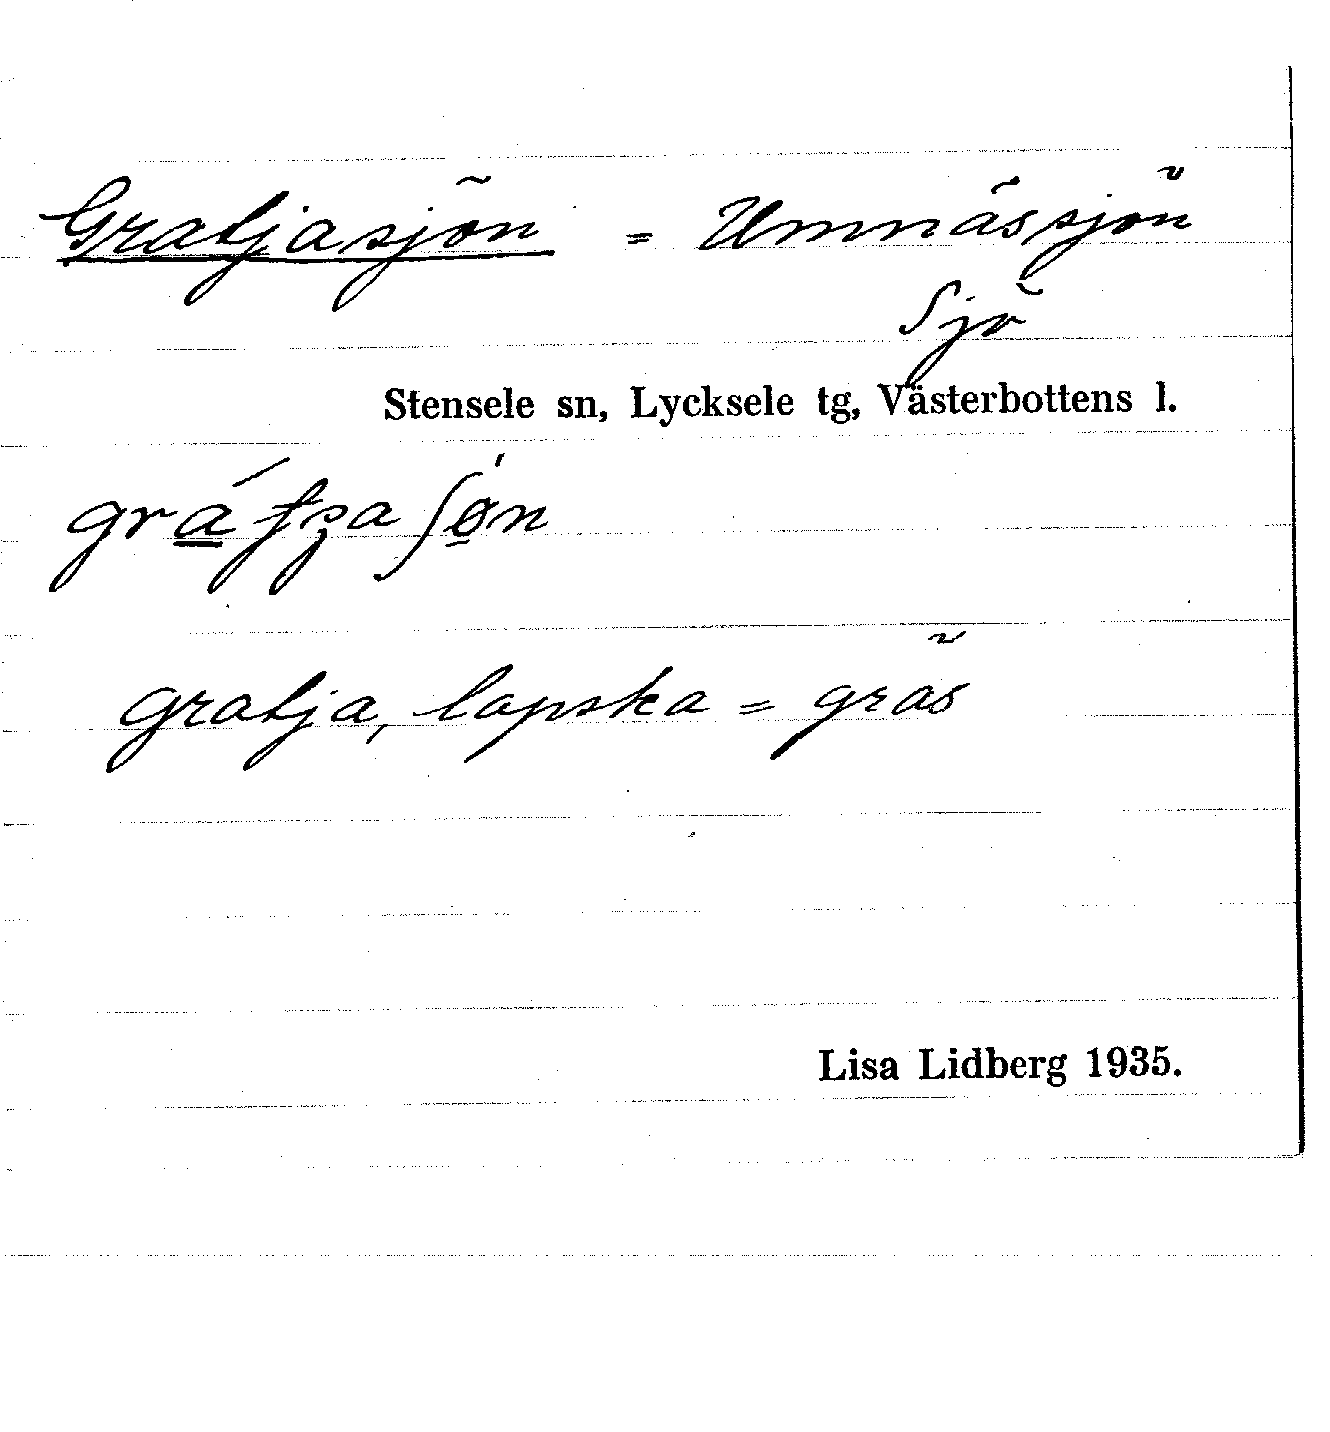 Gratjasjön = Umnässjön
Sjö
Stensele sn, Lycksele tg, Västerbottens l.
gratja, lapska = gräs
Lisa Lidberg 1935.